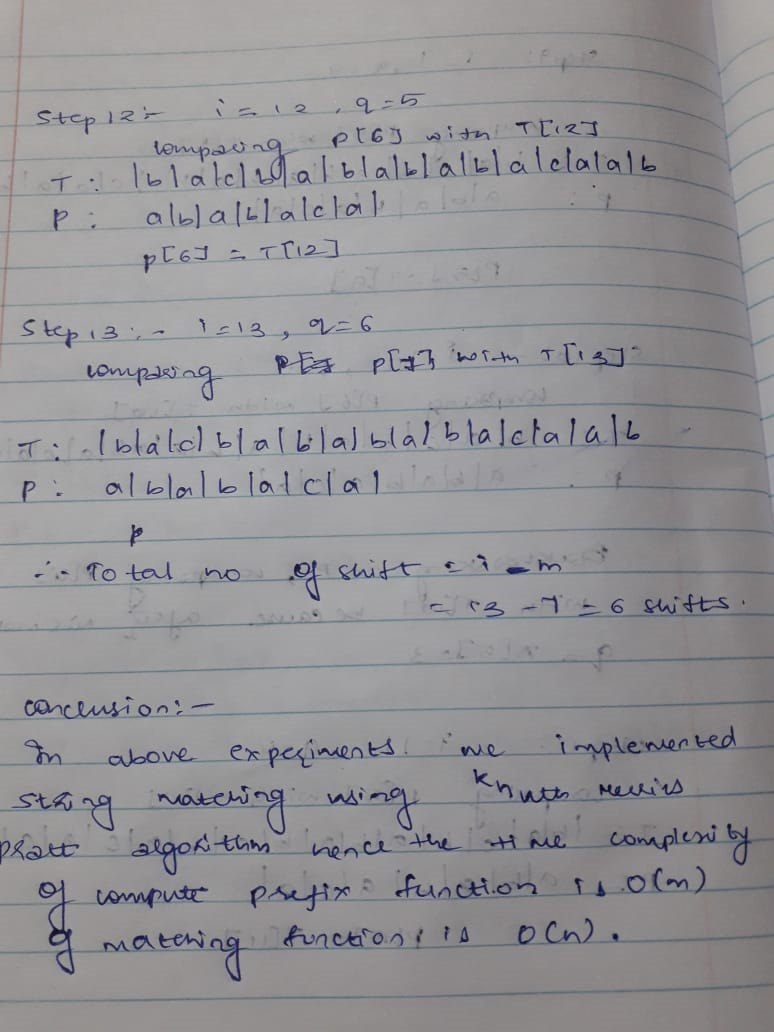 Step 12:- i = 12, q = 5
comparing P[6] with T[12]
T : |b|a|c|b|a|b|a|b|a|b|a|c|a|a|b
P : a|b|a|b|a|c|a|
p[6] = T[12]
Step 13:- i = 13, q = 6
comparing p[7] with T[13]
T : |b|a|c|b|a|b|a|b|a|b|a|c|a|a|b
P : a|b|a|b|a|c|a|
p
∴ Total no of shift = i - m
= 13 - 7 = 6 shifts.
conclusion:-
In above experiments we implemented
string matching using Knuth
pratt algorithm hence the time complexity
of compute prefix function is O(m)
g matching function is O(n).